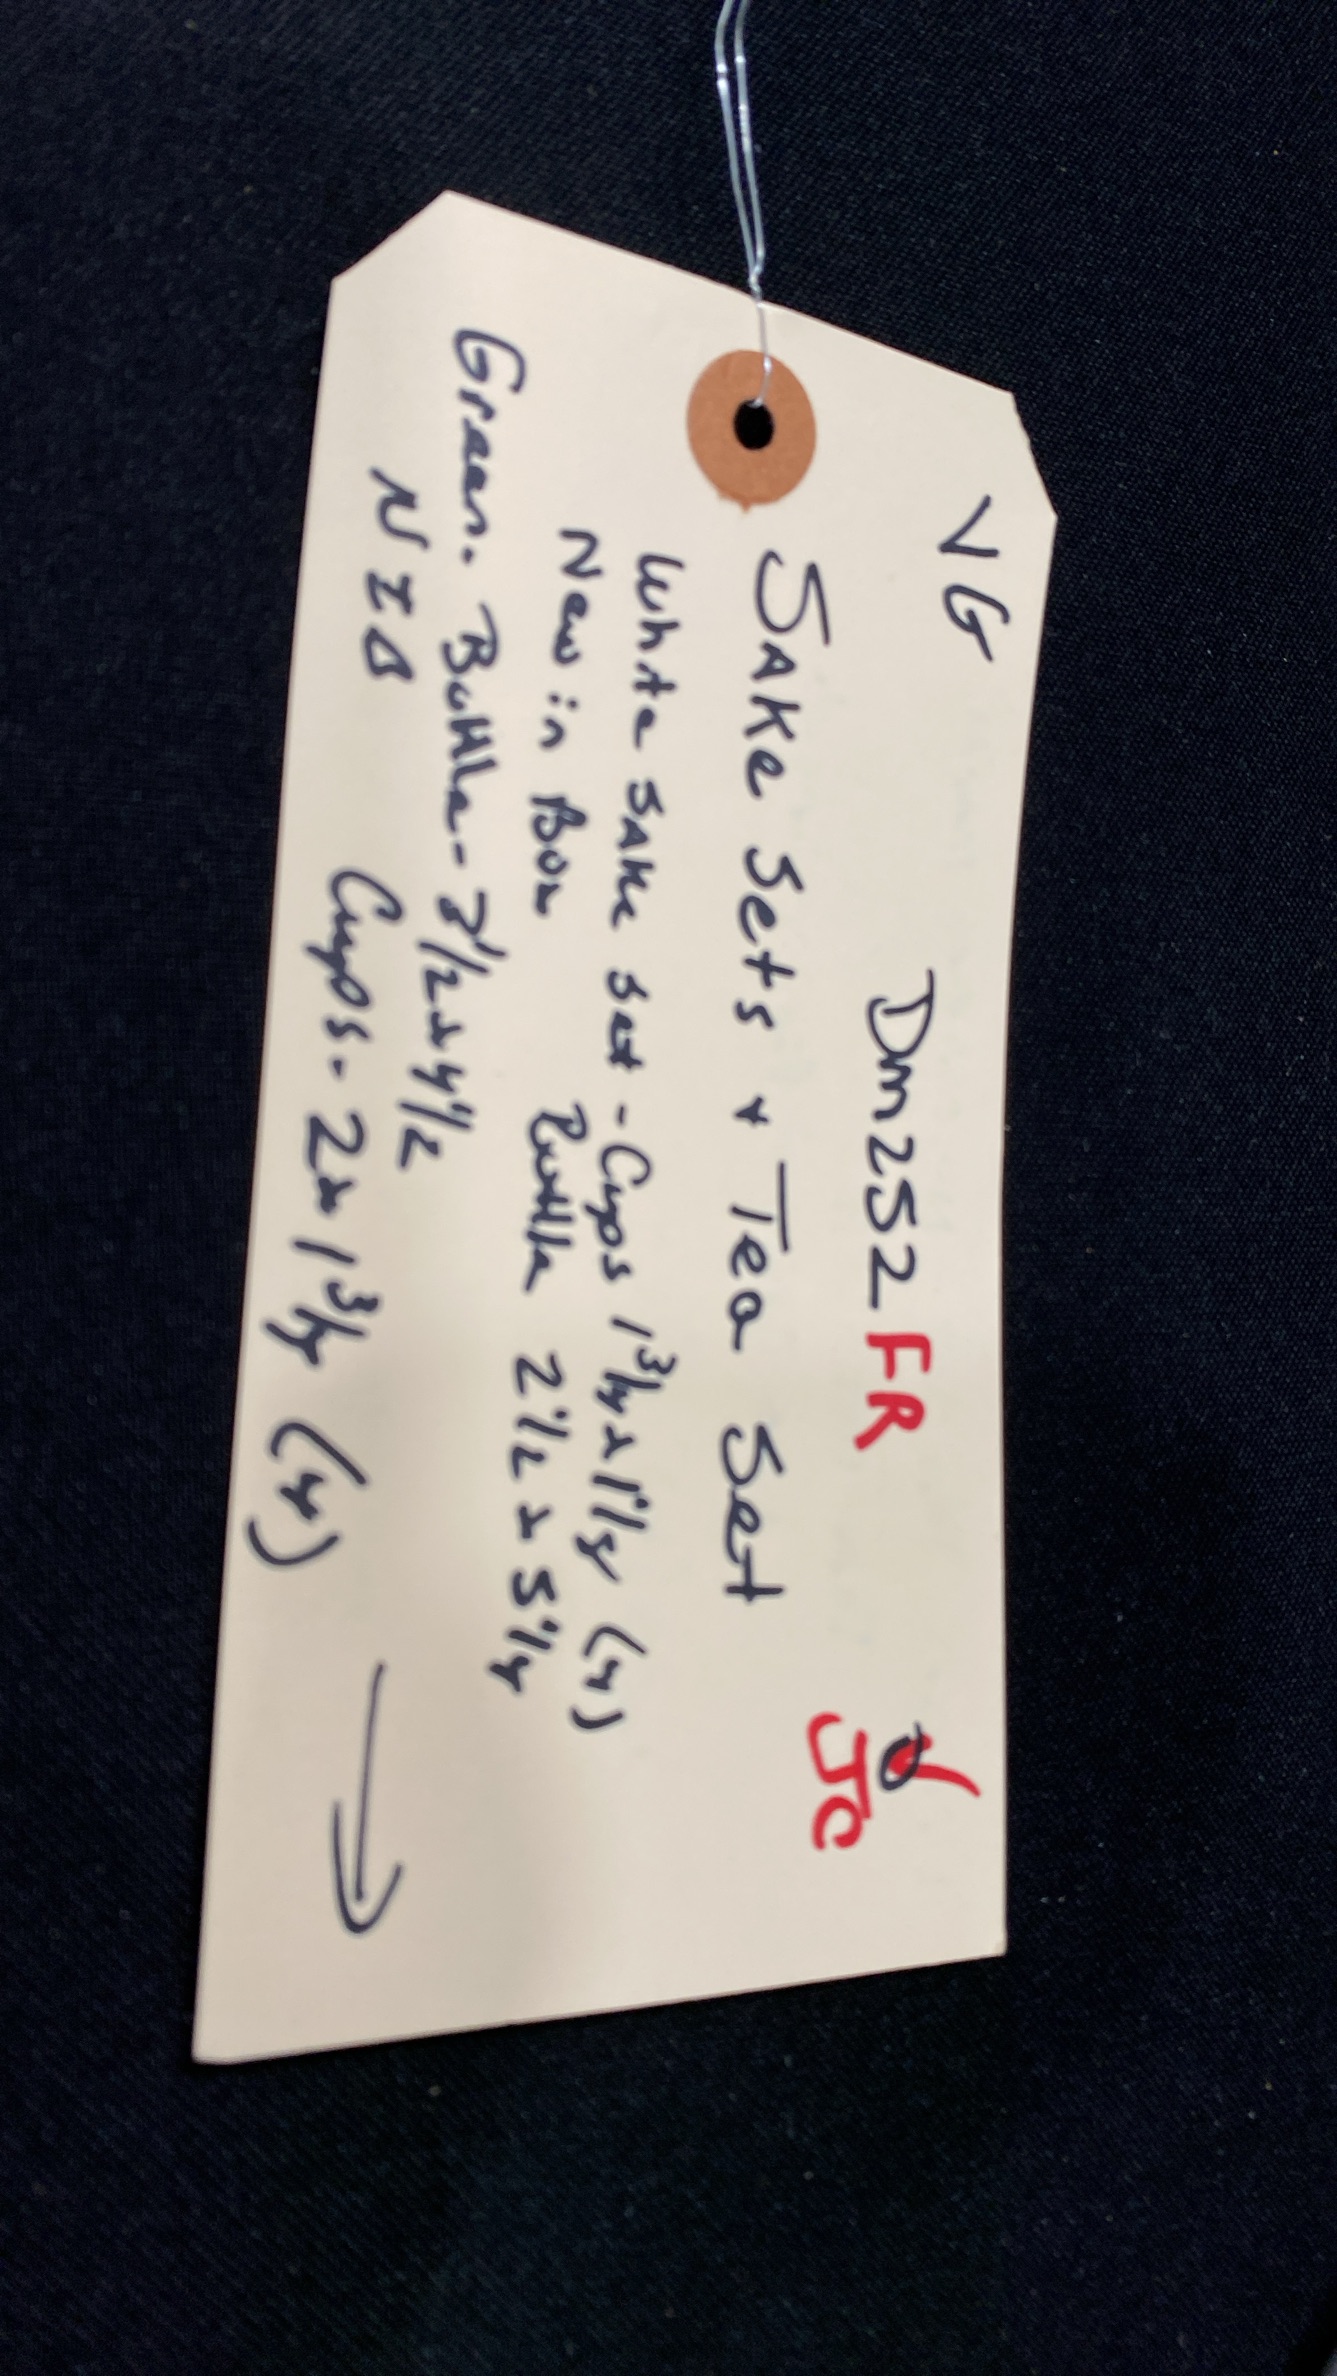 VG
Dm252 FR
JTC
SAKe Sets + Tea Set
White SAKe Set - Cups 1 3/4 x 1 1/4 (4)
New in Box Bottle 2 1/2 x 5 1/4
Green. Bottle - 3 1/2 x 4 1/2
NIB Cups - 2 x 1 3/4 (4)